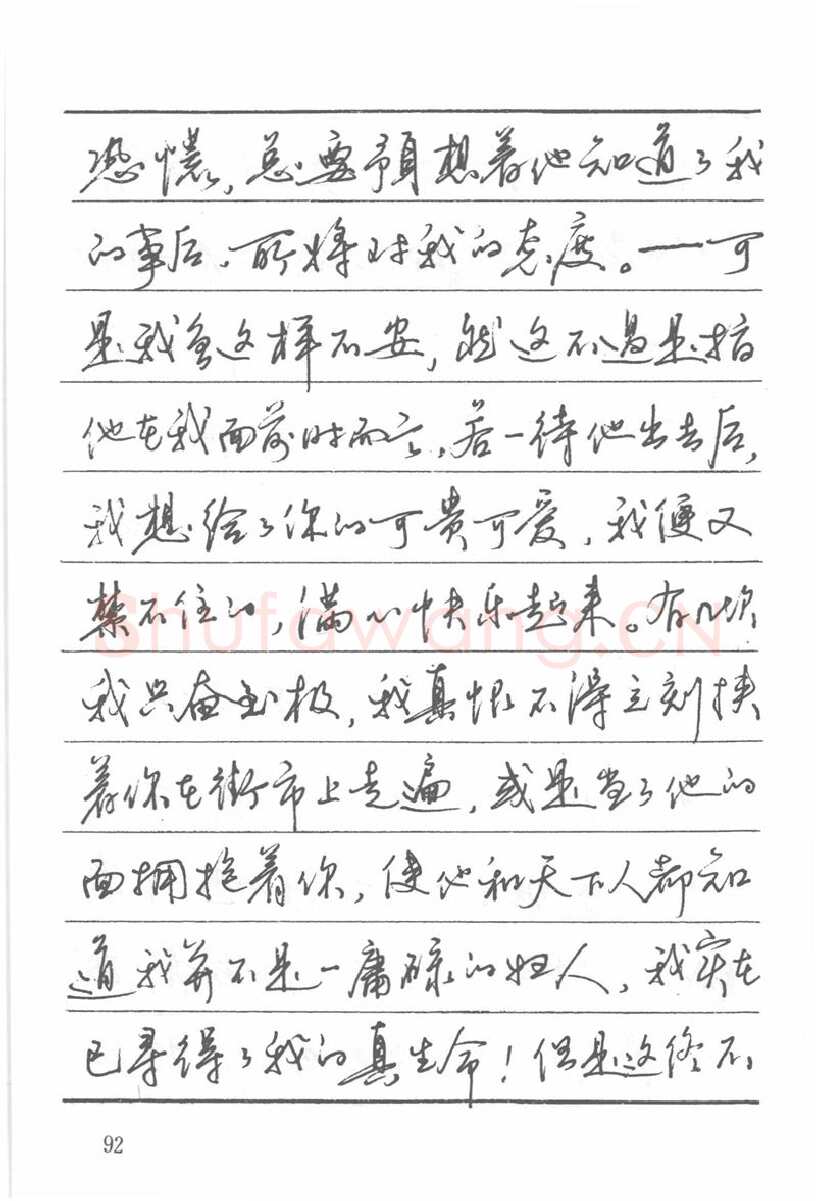 恐慌，总要预想着他知道了我
的事后，所将对我的态度。——可
是我虽这样不安，然这不过是指
他在我面前时而言，若一待他出去后，
我想给了你的可贵可爱，我便又
禁不住的，满心快乐起来。有几次
我兴奋到极，我真恨不得立刻挟
着你在街市上走遍，或是当了他的
面拥抱着你，使他和天下人都知
道我并不是一庸碌的妇人，我实在
已寻得了我的真生命！但是这终不
Shufawang.CN
92